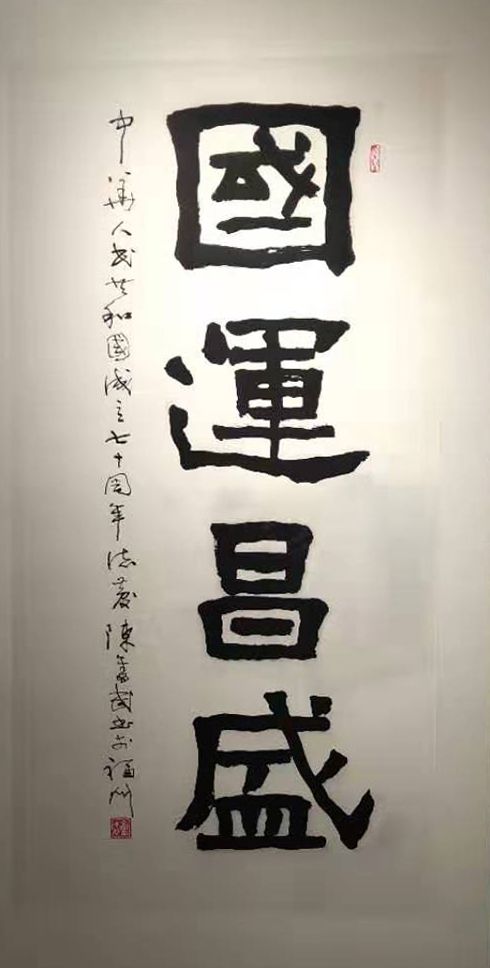 國運昌盛
中華人民共和國成立七十周年誌慶陳奮武书于福州